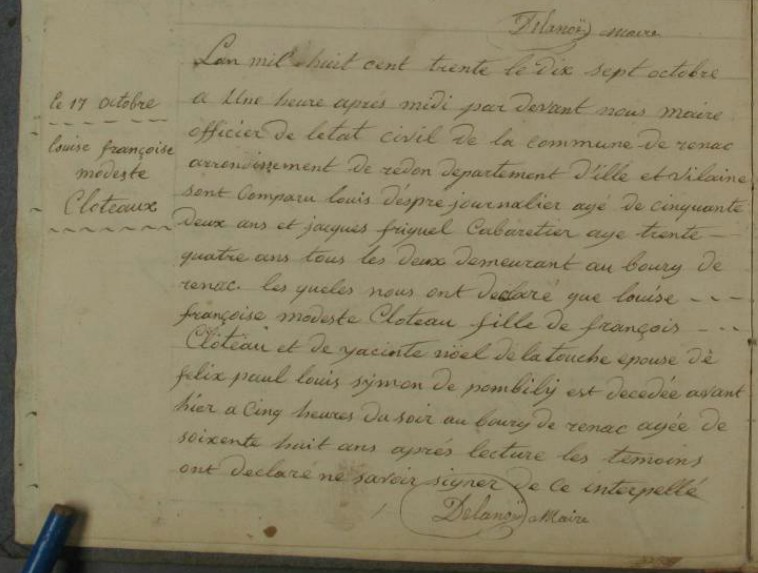 Delanoë maire
Lan mil huit cent trente le dix sept octobre
a Une heure aprés midi par devant nous maire
officier de letat civil de la commune de renac
arrondissement de redon departement d'ille et Vilaine
sont Comparu louis déspre journalier agé de cinquante
deux ans et jacques friquel Cabaretier age trente —
quatre ans tous les deux demeurant au bourg de
renac. les queles nous ont declaré que louise - - -
françoise modeste Cloteau fille de françois - - -
Cloteau et de yacinte nöel de la touche épouse de
felix paul louis symon de pombily est decedée avant
hier a Cinq heures du soir au bourg de renac agée de
soixente huit ans aprés lecture les temoins
ont declaré ne savoir signer de Ce interpellé
Delanoë Maire
le 17 octobre
louise françoise
modeste
Cloteaux